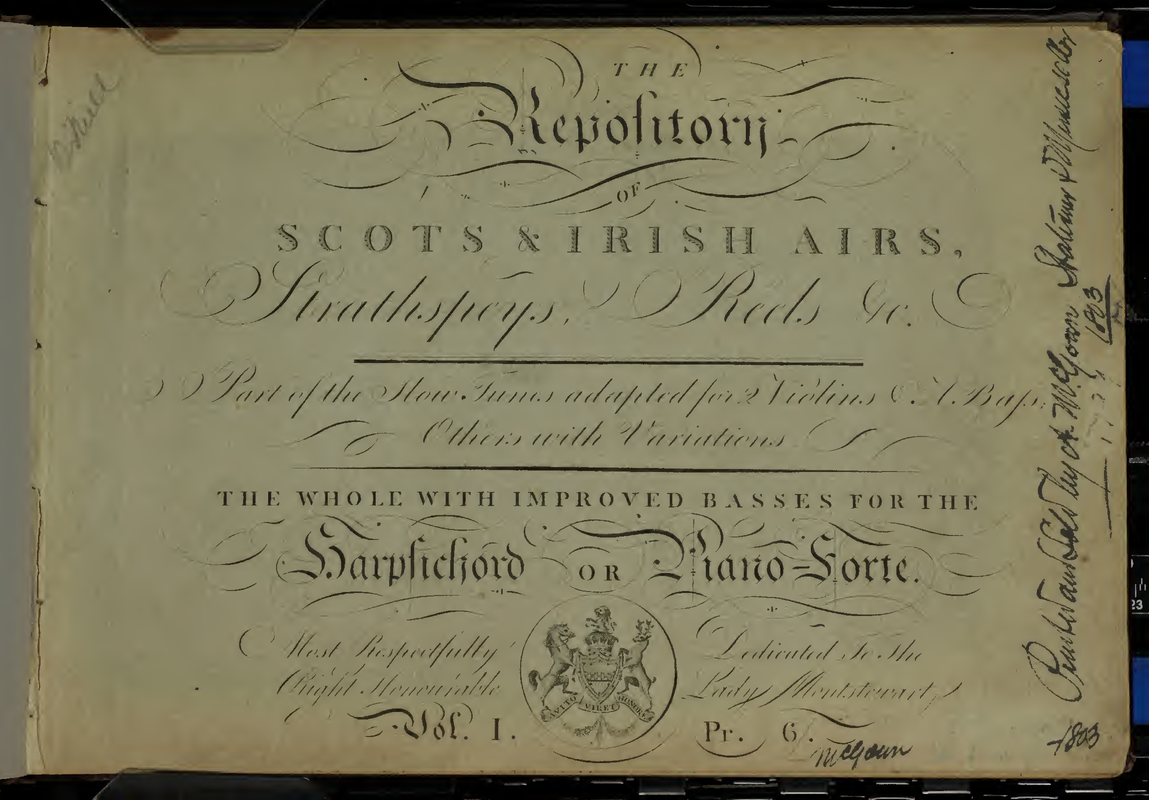 THE
Repoſitory
OF
SCOTS & IRISH AIRS,
Strathspeys, Reels &c.
Part of the Slow Tunes adapted for 2 Violins & A Baſs,
Others with Variations
THE WHOLE WITH IMPROVED BASSES FOR THE
Harpſichord OR Piano-Forte.
Most Respectfully Dedicated To The
Right Honourable Lady Mountstewart
AVITO VIRET HONORE
Vol. I. Pr. 6
McGoun
1803
Printed and Sold by A. McGoun
1803